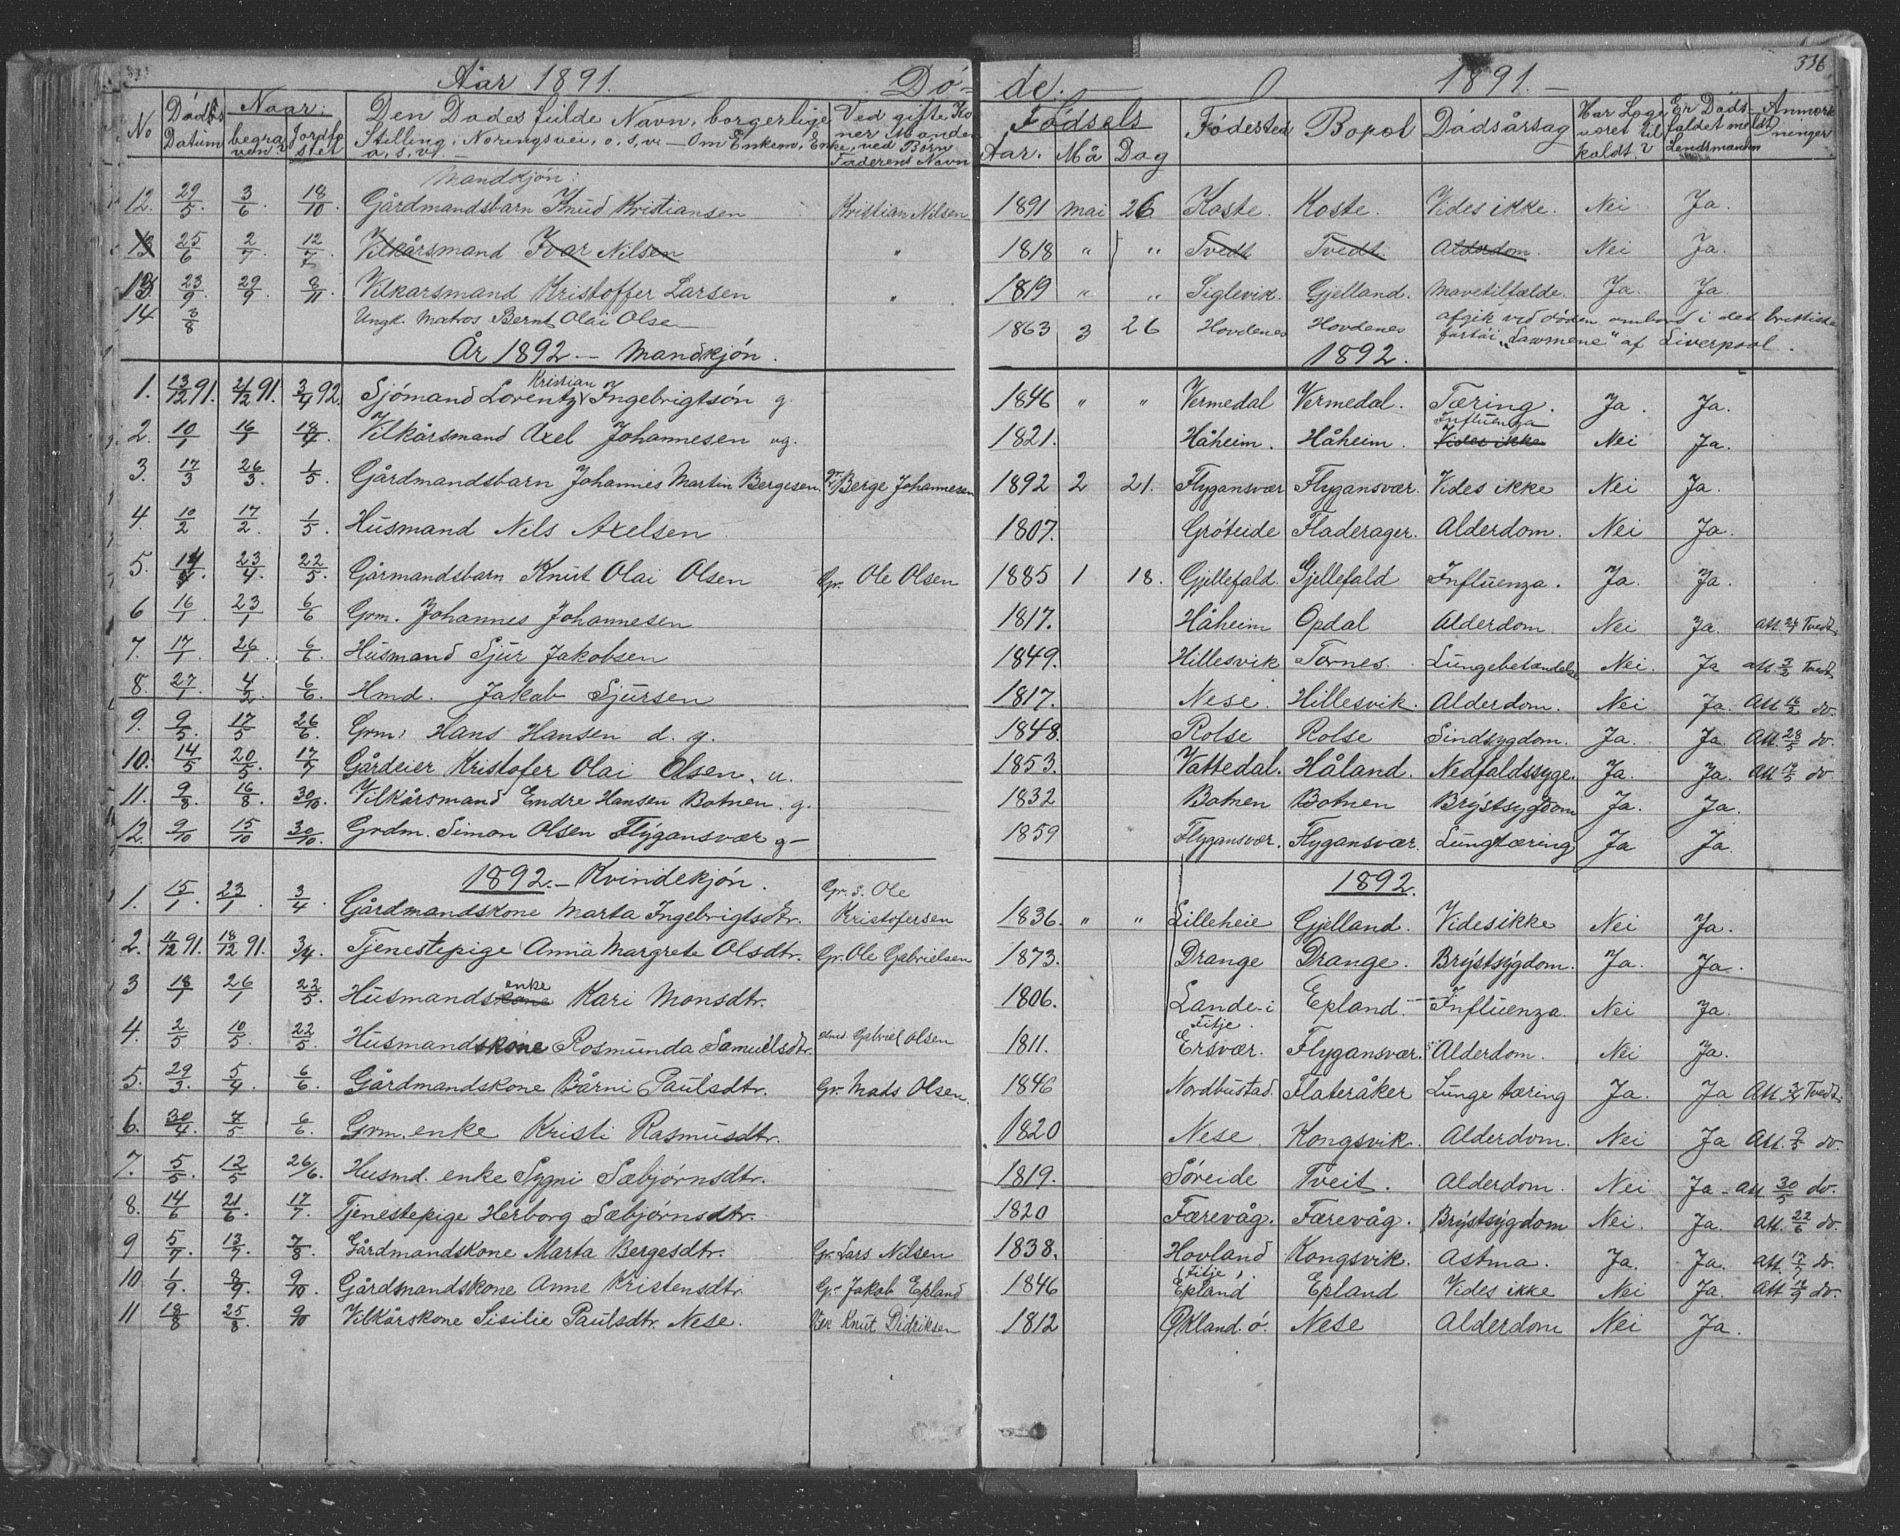 Aar 1891. Dö- de. 1891. 336
No Döds Datum Naar: begraven? Jordfæstet Den Dödes fulde Navn, borgerlige Stilling, Næringsvei, o.s.v. – Om Enkem, Enke, o.s.v. Ved gifte Koner Manden, ved Börn Faderens Navn Födsels Aar. Må Dag Födested Bopæl Dödsårsag Har Læge været tilkaldt? Er Dödsfaldet meldt Lendsmanden Anmærkninger
Mandkjön:
12. 29/5. 3/6. 18/10 Gårdmandsbarn Knud Kristiansen Kristian Nilsen 1891 Mai 26 Koste. Koste. Vides ikke. Nei Ja.
13 25/6 2/7. 12/7 Vilkårsmand Ivar Nilsen " 1818 " " Tvedt Tvedt Alderdom. Nei Ja.
13. 23/9. 29/9. 8/11 Vilkårsmand Kristoffer Larsen " 1819 " " Siglevik. Gjelland. Mavetilfælde. Ja. Ja
14 3/8 Ungk. Matros Bernt Olai Olsen 1863 3 26 Hovdenes Hovdenes afgik ved döden ombord i det brittiske
fartöi "Lawmene" af Liverpool.
År 1892 – Mandkjön. 1892.
1. 13/12 91. 21/12 91. 3/4 92. Sjömand Lorentz Kristian Ingebrigtsön g. 1846 " " Vermedal Vermedal. Tæring. Ja. Ja.
2. 10/1 16/1 18/4 Vilkårsmand Axel Johannesen ug. 1821. Håheim. Håheim. Influenza Vides ikke Nei Ja.
3. 17/3 26/3. 1/5. Gårdmandsbarn Johannes Martin Bergesen. Gr. Berge Johannesen 1892 2 21. Flygansvær Flygansvær. Vides ikke Nei Ja.
4. 10/2 17/2. 1/5. Husmand Nils Axelsen 1807. Gröteide Fladerager. Alderdom. Nei Ja.
5. 14/4. 23/4. 22/5. Gårmandsbarn Knut Olai Olsen Gr. Ole Olsen 1885 1 18. Gjellefald. Gjellefald Influenza. Ja. Ja.
6 16/1. 23/1 6/6 Grm. Johannes Johannesen 1817. Håheim Opdal Alderdom. Nei Ja. Att. 24 Tvedt
7. 17/1 26/1. 6/6. Husmand Sjur Jakobsen 1849. Hillesvik Tornes. Lungebetændelse Nei. Ja att. 3/2 Tvedt
8. 27/1 4/2 6/6. Hmd. Jakob Sjursen 1817. Nese. Hillesvik. Alderdom. Nei Ja. Att. 16/2 do.
9. 9/5. 17/5 26/6. Grm. Hans Hansen d. g. 1848. Rolse Rolse Sindsygdom. Ja. Ja. Att. 28/5 do.
10. 14/5 20/5. 17/7 Gårdeier Kristofer Olai Olsen. u. 1853. Vattedal. Håland. Nedfaldssyge. Ja. Ja. Att. do.
11. 9/8. 16/8. 30/10. Vilkårsmand Endre Hansen Botnen. g. 1832 Botnen Botnen Brystsygdom Ja. Ja.
12. 9/10 15/10 30/10. Grdm. Simon Olsen Flygansvær g– 1859 Flygansvær. Flygansvær. Lungtæring Ja Ja.
1892. – Kvindekjön. 1892.
1. 15/1. 23/1. 3/4 Gårdmandskone Marta Ingebrigtsdtr. Gr. s. Ole Kristofersen 1836. " " Lilleheie Gjelland. Vides ikke Nei Ja.
2. 11/12 91. 18/12 91. 3/4. Tjenestepige Anna Margrete Olsdtr. Gr. Ole Gabrielsen 1873. Drange Drange. Brystsygdom. Ja. Ja.
3 18/1 26/1 22/5. Husmandskone enke Kari Monsdtr. 1806. Lande i Fitje. Epland. Influenza Nei Ja.
4. 2/5 10/5. 22/5. Husmandskone Rosmunda Samuelsdtr. Gabriel Olsen 1811. Ersvær. Flygansvær. Alderdom. Nei Ja.
5. 29/3. 5/4. 6/6. Gårdmandskone Bårni Paulsdtr. Gr. Mats Olsen. 1846 Nordbustad. Flateråker Lungetæring Ja. Ja Att. Tvedt.
6. 30/4. 7/5 6/6. Grm. enke Kristi Rasmusdtr. 1820 Nese. Kongsvik. Alderdom. Nei Ja Att. 9/5 do.
7. 5/5. 12/5 26/6. Husmd. enke Sygni Sæbjörnsdtr. 1819. Söreide Tveit. Alderdom. Nei Ja – att 30/5 do.
8. 14/6 21/6. 17/7. Tjenestepige Herborg Sæbjörnsdtr. 1820 Færevåg. Færevåg. Brystsygdom Nei. Ja. Att. 22/6 do.
9 5/7. 13/7. 7/8. Gårdmandskone Marta Bergesdtr. Gr. Lars Nilsen 1838. Hovland Kongsvik. Astma. Ja. Ja. Att. 17/7 do.
10. 1/9. 8/9. 9/10. Gårdsmandskone Anne Kristensdtr. Gr. Jakob Epland 1846 (Fitje) Epland Epland Vides ikke Nei Ja. Att. do.
11 18/8 25/8. 9/10 Vilkårskone Sisilie Paulsdtr. Nese. Knut Didriksen 1812 Ökland. ö. Nese Alderdom Nei Ja.